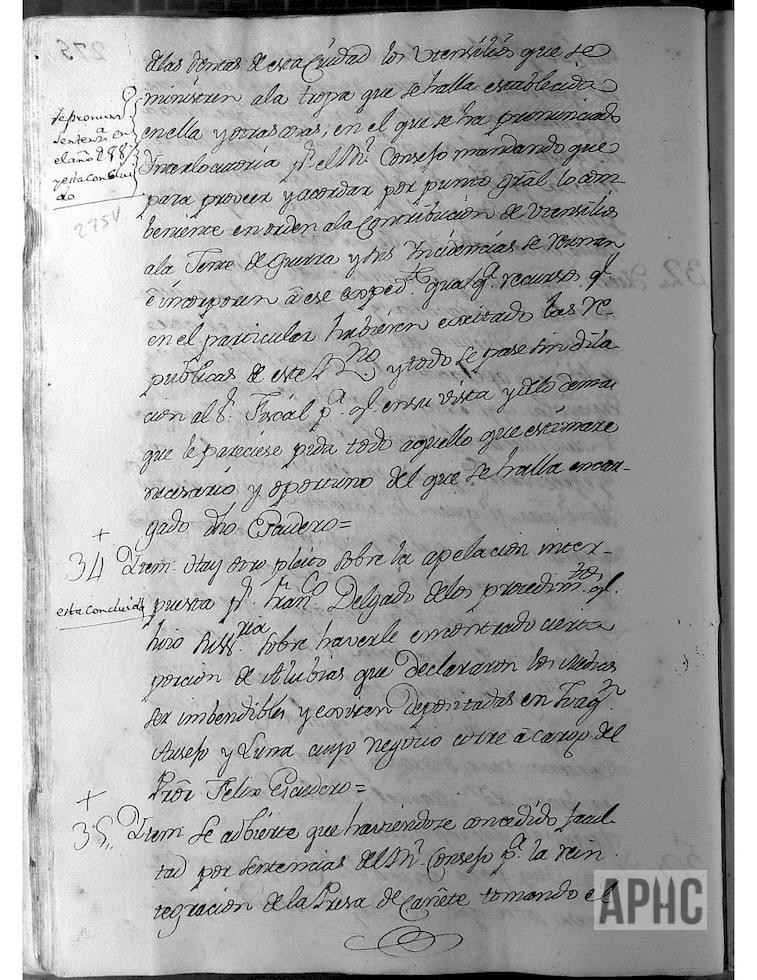 delas Rentas de esta Ciudad los Utensilios que se
ministren ala tropa que se halla establecida
en ella y otras cosas, en el que se ha pronunciado
Interlocutoria pr. el Rl. Consejo mandando que
para proveer y acordar por punto gral lo com-
beniente en orden ala Contribucion de Utensilios
ala Jente de Guerra y sus Incidencias se reunan
è incorporen à ese expedte. qualqa. recurso ql
en el particular hubieren excitado las Re-
publicas de este Rno, y todo se pase sin dila
cion al Sr. Fiscal pa. ql en su vista y delo demas
que le pareciese pida todo aquello que estimare
necesario y oportuno del que se halla encar-
gado dho Escudero=
se pronun.
sentena. en
el año 987
y esta conclui
do
275v
+
34 Ytem. Hay otro pleito sobre la apelacion inter-
puesta pr. Franco Delgado delos procedimtos. ql.
hizo sobre haverle encontrado cierta
porcion de Alubias que declararon los Medicos
ser imbendibles y existen depositadas en
Ausejo y Luna cuyo negocio corre à cargo del
Pror Felix Escudero=
esta concluido
+
35,, Ytem. Se adbierte que haviendose concedido facul
tad por sentencias del Rl. Consejo pa. la rein
tegracion de la Presa de Cañete tomando el
APHC